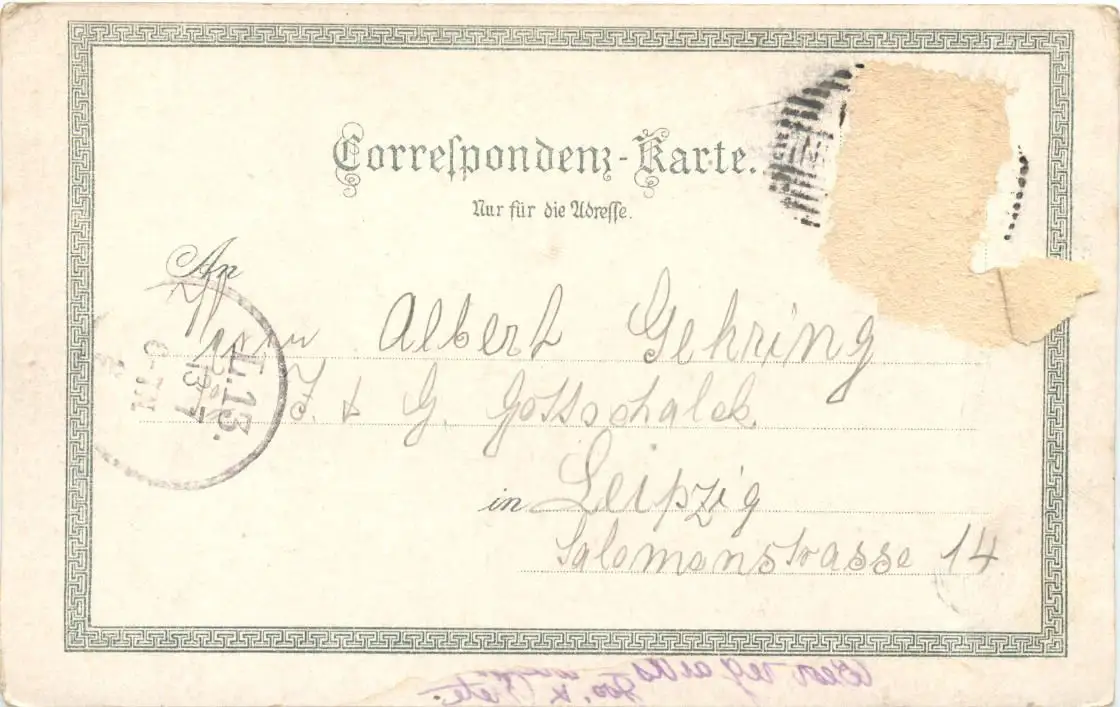 Correspondenz-Karte.
Nur für die Adresse.
An
Herrn Albert Gehring
J. & G. Gottschalck
in Leipzig
Salomonstrasse 14
L. 13.
13 7
6-7N